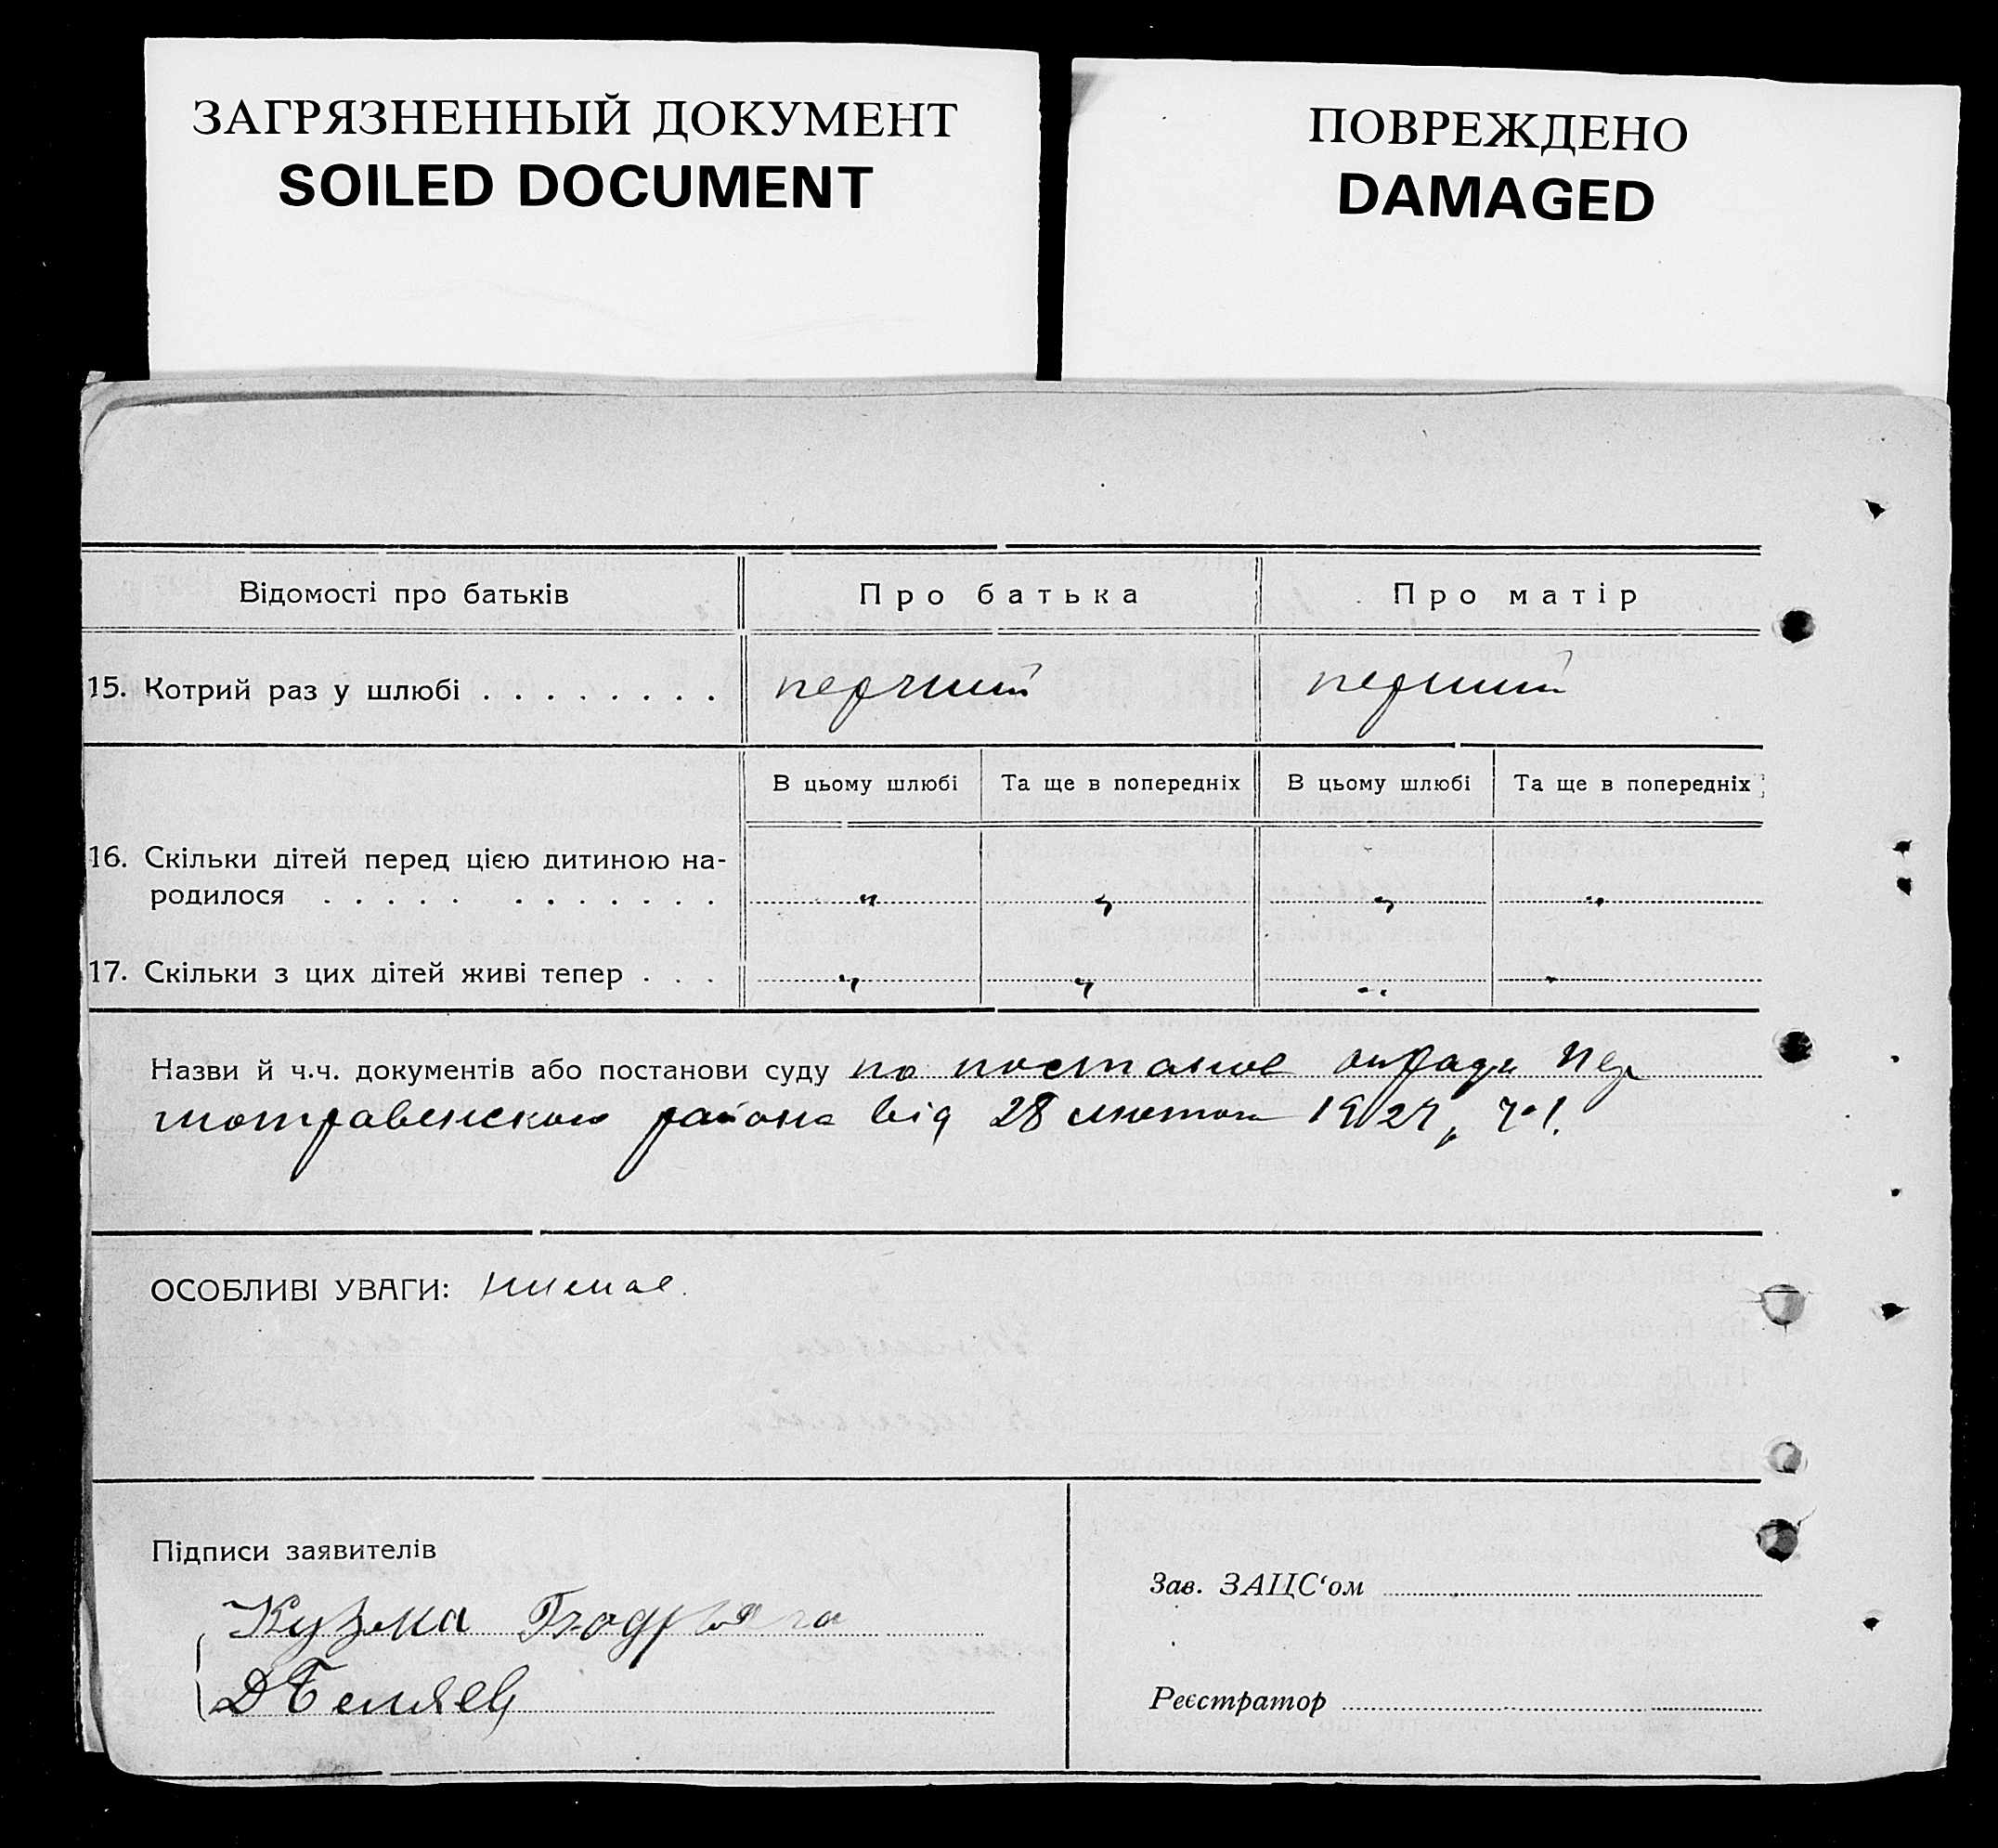 ЗАГРЯЗНЕННЫЙ ДОКУМЕНТ
SOILED DOCUMENT
ПОВРЕЖДЕНО
DAMAGED
Відомості про батьків Про батька Про матір
15. Котрий раз у шлюбі . . . . . . . . перчий перший
В цьому шлюбі Та ще в попередніх В цьому шлюбі Та ще в попередніх
16. Скільки дітей перед цією дитиною на-
родилося . . . . . . . . . . . . " " " "
17. Скільки з цих дітей живі тепер . . . " " " "
Назви й ч.ч. документів або постанови суду по постанові Пер
шотравенского района від 28 лютого 1927 р. ч. 1.
ОСОБЛИВІ УВАГИ: немае.
Підписи заявителів
Кузма
Зав. ЗАЦС‘ом
Д Беляев
Реєстратор